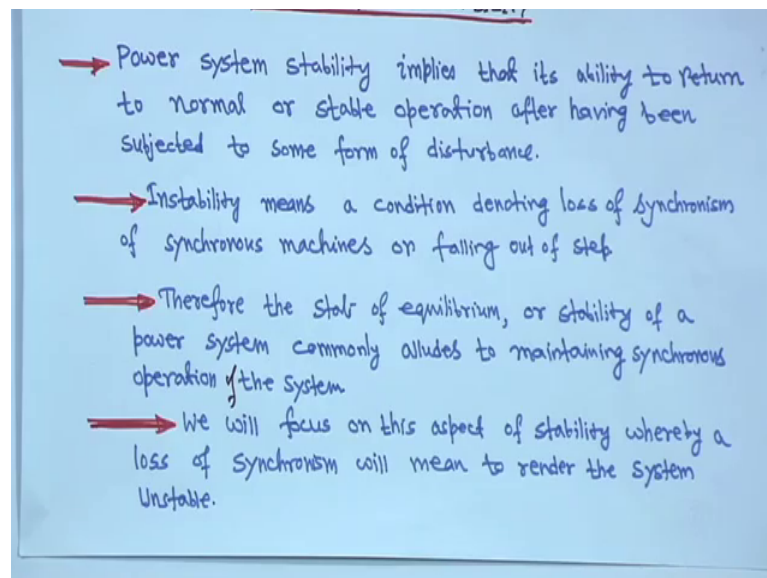 Power system stability implies that its ability to return
to normal or stable operation after having been
subjected to some form of disturbance.
Instability means a condition denoting loss of synchronism
of synchronous machines or falling out of step
Therefore the stat of equilibrium, or stability of a
power system commonly alludes to maintaining synchronous
operation of the system
We will focus on this aspect of stability whereby a
loss of synchronism will mean to render the system
Unstable.